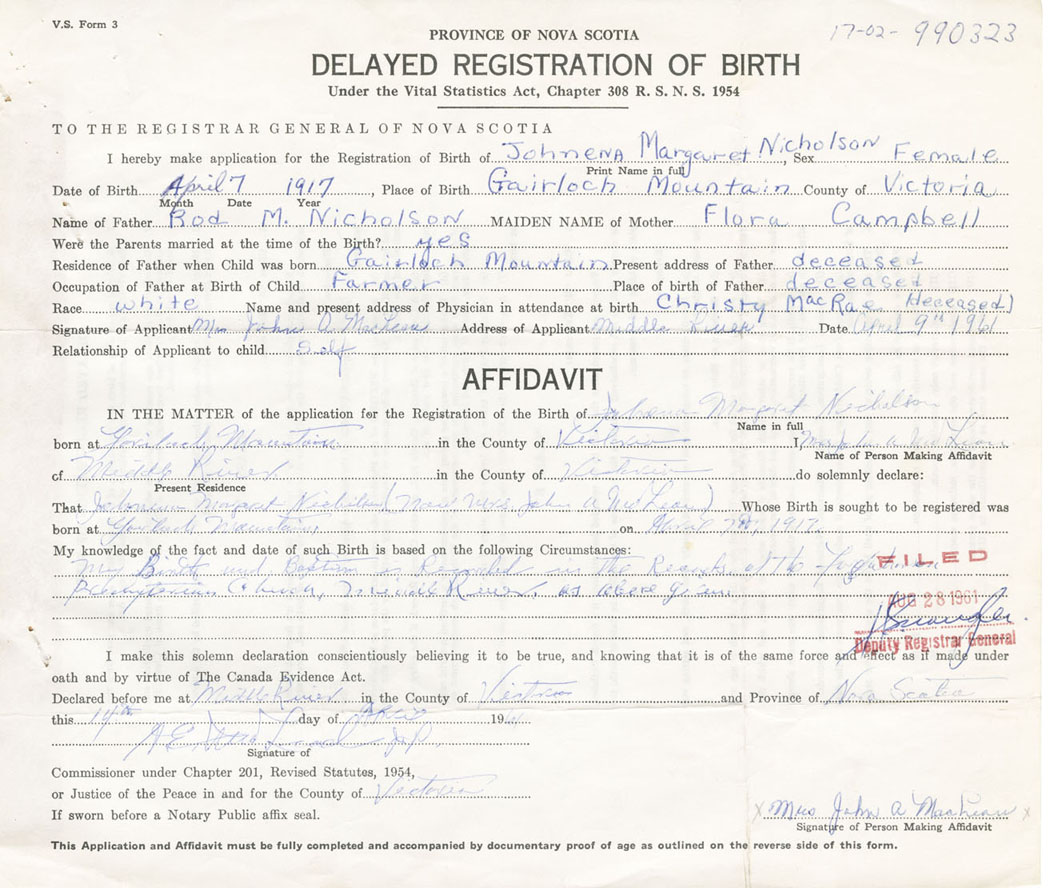 V.S. Form 3
17-02-990323
PROVINCE OF NOVA SCOTIA
DELAYED REGISTRATION OF BIRTH
Under the Vital Statistics Act, Chapter 308 R. S. N. S. 1954
TO THE REGISTRAR GENERAL OF NOVA SCOTIA
I hereby make application for the Registration of Birth of Johnena Margaret Nicholson, Sex Female
Print Name in full
Date of Birth April 7 1917, Place of Birth Gairloch Mountain County of Victoria
Month Date Year
Name of Father Rod M. Nicholson MAIDEN NAME of Mother Flora Campbell
Were the Parents married at the time of the Birth? yes
Residence of Father when Child was born Gairloch Mountain Present address of Father deceased
Occupation of Father at Birth of Child Farmer Place of birth of Father deceased
Race white Name and present address of Physician in attendance at birth Christy MacRae (deceased)
Signature of Applicant Mrs John A. MacLean Address of Applicant Middle River Date April 9th 1961
Relationship of Applicant to child Self
AFFIDAVIT
IN THE MATTER of the application for the Registration of the Birth of Johena Margaret Nicholson
Name in full
born at Mountain in the County of Victoria I, Mrs John A McLean
Name of Person Making Affidavit
of Middle River in the County of Victoria do solemnly declare:
Present Residence
That Margaret Nicholson (Now Mrs John A McLean) Whose Birth is sought to be registered was
born at Mountain on April 7th, 1917
My knowledge of the fact and date of such Birth is based on the following Circumstances:
My Birth and Baptism is Recorded in the Records of the
Presbyterian Church, Middle River, as above given
FILED
AUG 28 1961
Deputy Registrar General
I make this solemn declaration conscientiously believing it to be true, and knowing that it is of the same force and effect as if made under
oath and by virtue of The Canada Evidence Act.
Declared before me at Middle River in the County of Victoria and Province of Nova Scotia
this 14th day of April 1961
A.E. J.P.
Signature of
Commissioner under Chapter 201, Revised Statutes, 1954,
or Justice of the Peace in and for the County of Victoria
If sworn before a Notary Public affix seal.
x Mrs John A MacLean x
Signature of Person Making Affidavit
This Application and Affidavit must be fully completed and accompanied by documentary proof of age as outlined on the reverse side of this form.